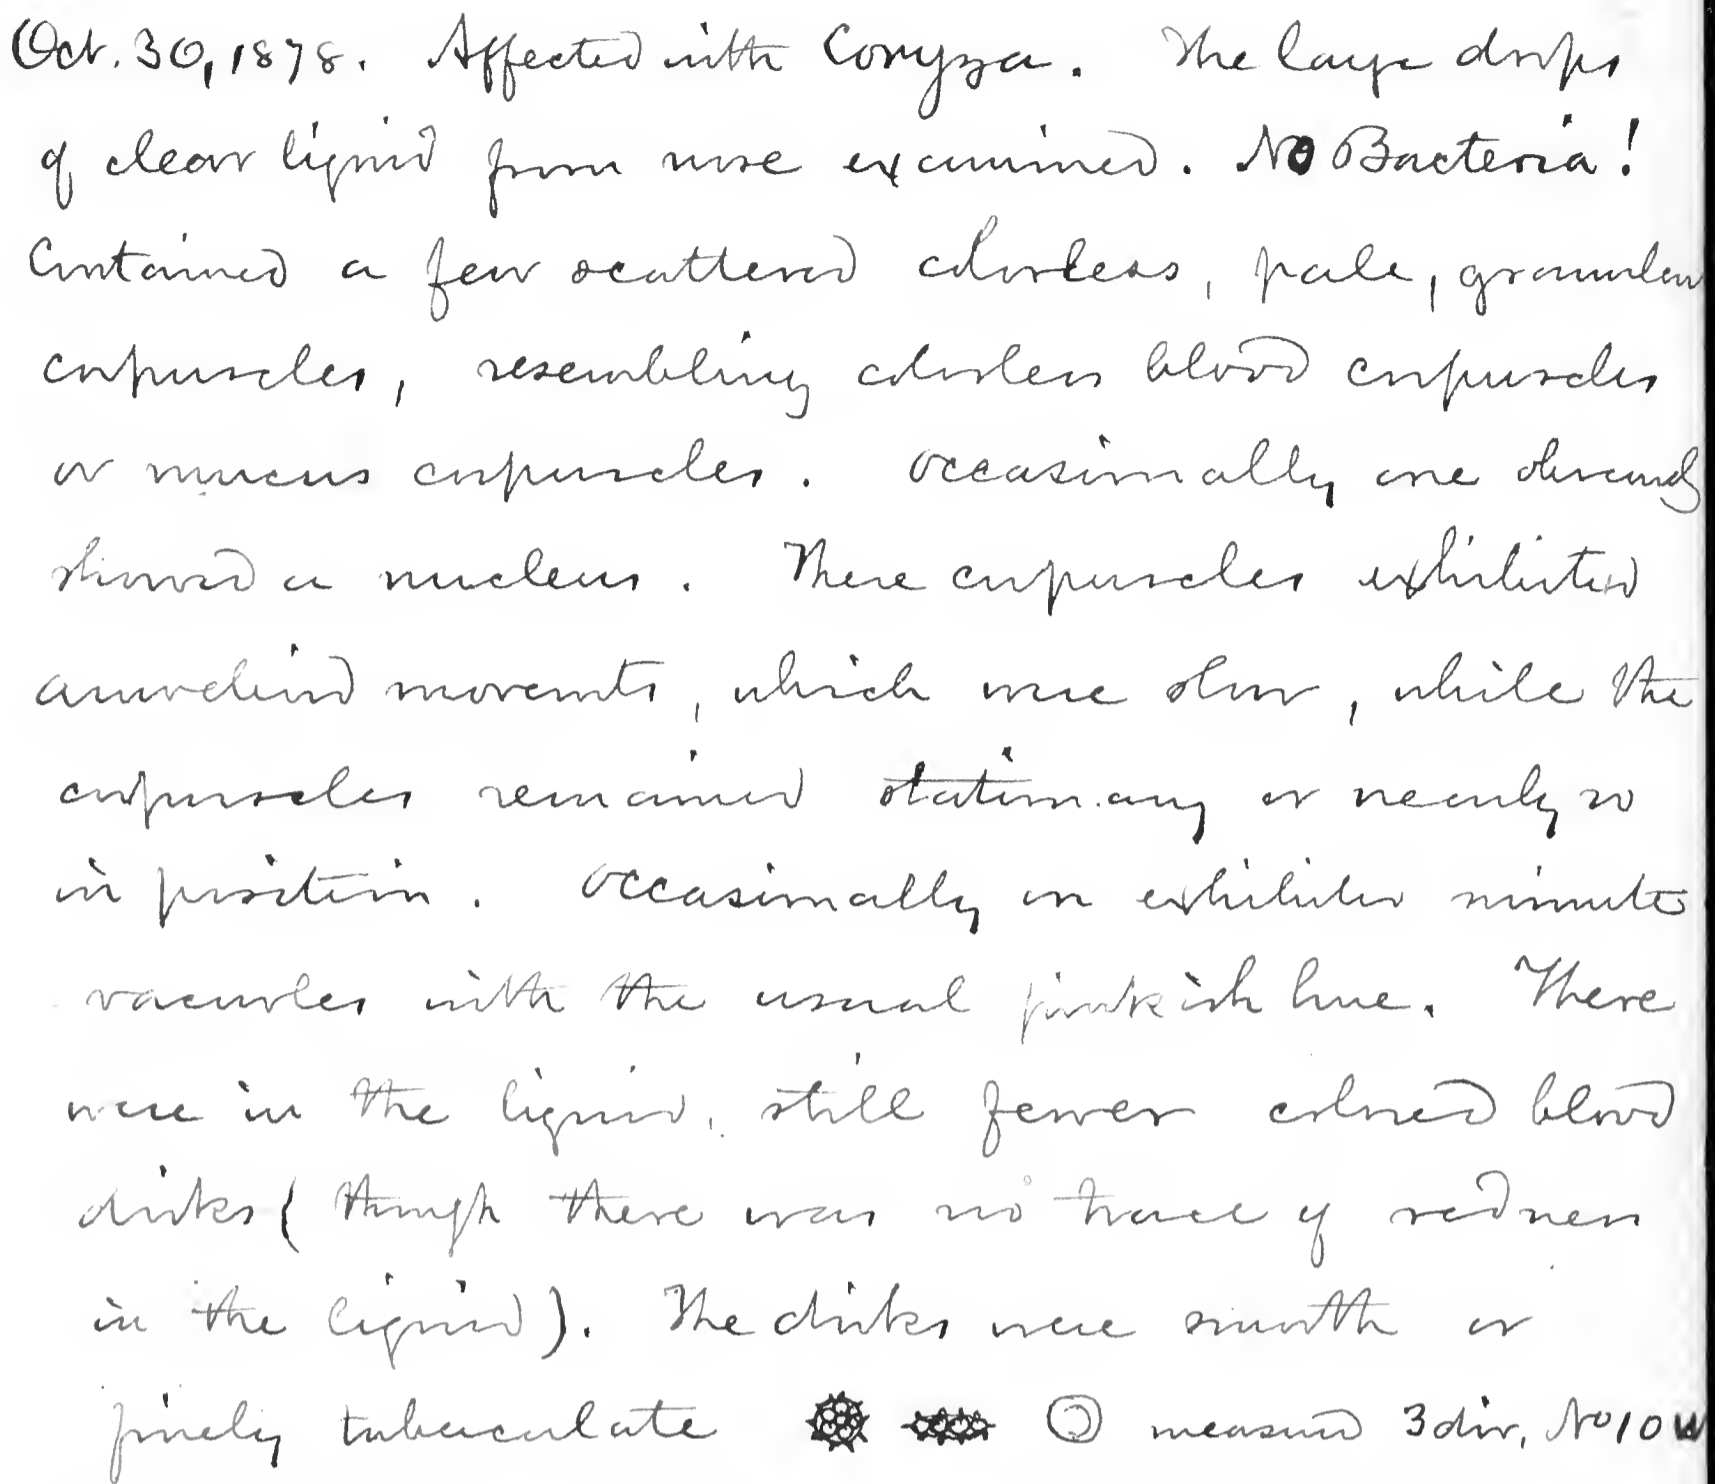 Oct. 30, 1878. Affected with Coryza. The large drops
of clear liquid from nose examined. No Bacteria!
Contained a few scattered colorless, pale, granular
corpuscles, resembling colorless blood corpuscles
or mucus corpuscles. Occasionally one obscurely
showed a nucleus. These corpuscles exhibited
amoeboid movements, which were slow, while the
corpuscles remained stationary or nearly so
in position. Occasionally on exhibited minute
vacuoles with the usual pinkish hue. There
were in the liquid, still fewer colored blood
disks (though there was no trace of redness
in the liquid). The disks were smooth or
finely tuberculate measured 3 div. No 10